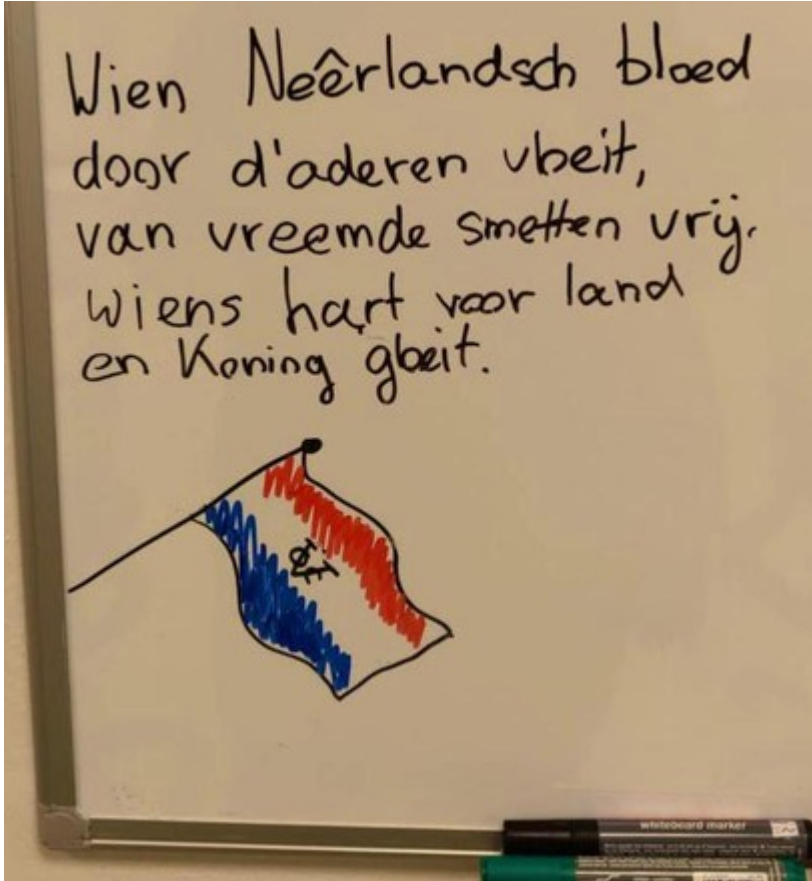 Wien Neêrlandsch bloed
door d'aderen vloeit,
van vreemde smetten vrij.
Wiens hart voor land
en Koning gloeit.
whiteboard marker